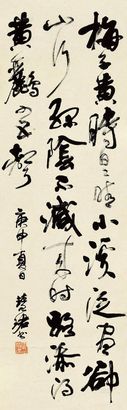 梅子黄時日日晴小溪泛盡卻
山行綠陰不減來時路添得
黄鸝四五聲
庚申夏日